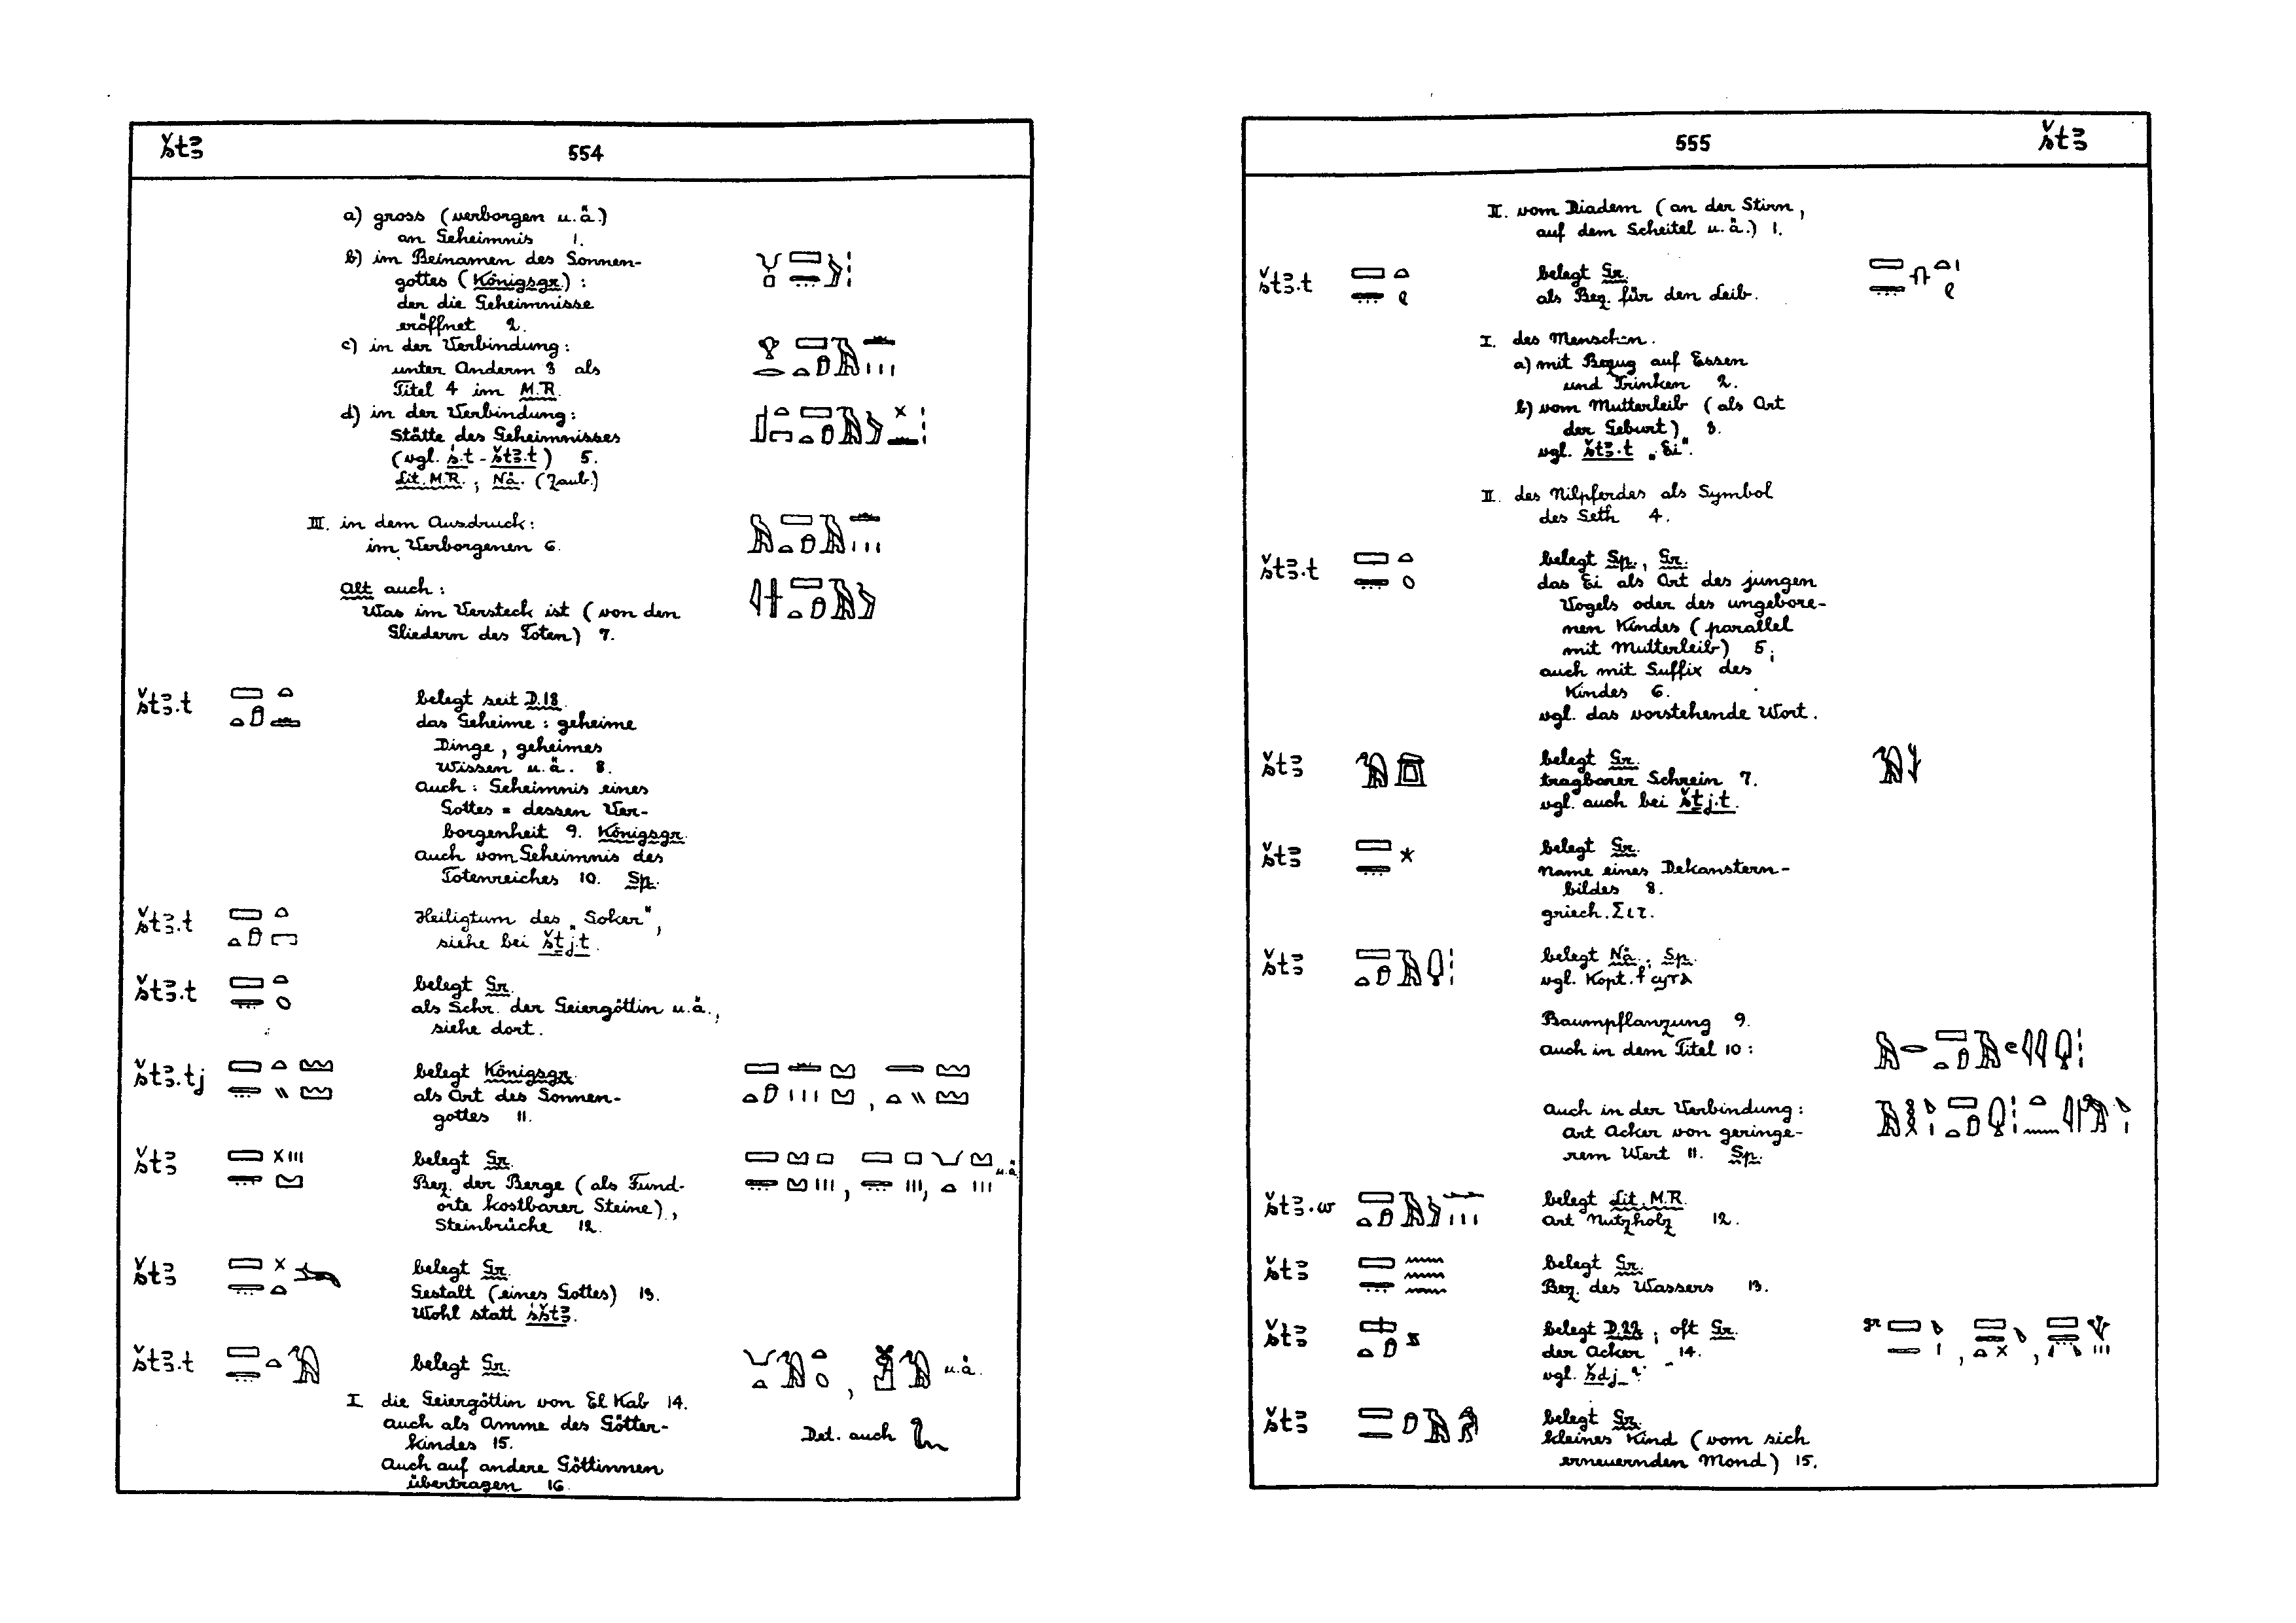 št3
554
a) gross (verborgen u.ä.)
an Geheimnis 1.
b) im Beinamen des Sonnen-
gottes (Königsgr.) :
der die Geheimnisse
eröffnet 2.
c) in der Verbindung:
unter Anderm 3 als
Titel 4 im M.R.
d) in der Verbindung:
Stätte des Geheimnisses
(vgl. ś.t - št3.t) 5.
Lit. M.R. ; Nä. (Zaub.)
III. in dem Ausdruck:
im Verborgenen 6.
Alt auch:
Was im Versteck ist (von den
Gliedern des Toten) 7.
št3.t belegt seit D.18.
das Geheime : geheime
Dinge, geheimes
Wissen u.ä. 8.
Auch : Geheimnis eines
Gottes = dessen Ver-
borgenheit 9. Königsgr.
Auch vom Geheimnis des
Totenreiches 10. Sp.
št3.t Heiligtum des „Soker",
siehe bei štj.t.
št3.t belegt Gr.
als Schr. der Geiergöttin u.ä.,
siehe dort.
št3.tj belegt Königsgr.
als Ort des Sonnen-
gottes 11.
št3 belegt Gr.
Bez. der Berge (als Fund- u.ä.
orte kostbarer Steine),
Steinbrüche 12.
št3 belegt Gr.
Gestalt (eines Gottes) 13.
Wohl statt śšt3.
št3.t belegt Gr. u.ä.
I die Geiergöttin von El Kab 14.
auch als Amme des Götter-
kindes 15. Det. auch
Auch auf andere Göttinnen
übertragen 16.
555
št3
II. vom Diadem (an der Stirn,
auf dem Scheitel u.ä.) 1.
št3.t belegt Gr.
als Bez. für den Leib.
I. des Menschen.
a) mit Bezug auf Essen
und Trinken 2.
b) vom Mutterleib (als Ort
der Geburt) 3.
vgl. št3.t „Ei".
II. des Nilpferdes als Symbol
des Seth 4.
št3.t belegt Sp., Gr.
das Ei als Ort des jungen
Vogels oder des ungebore-
nen Kindes (parallel
mit Mutterleib) 5;
auch mit Suffix des
Kindes 6.
vgl. das vorstehende Wort.
št3 belegt Gr.
tragbarer Schrein 7.
vgl. auch bei štj.t.
št3 belegt Gr.
Name eines Dekanstern-
bildes 8.
griech. Σιτ.
št3 belegt Nä.; Sp.
vgl. Kopt.
Baumpflanzung 9.
auch in dem Titel 10 :
Auch in der Verbindung:
Art Acker von geringe-
rem Wert 11. Sp.
št3.w belegt Lit. M.R.
Art Nutzholz 12.
št3 belegt Gr.
Bez. des Wassers 13.
št3 belegt D.22; oft Gr. gr
der Acker 14.
vgl. šdj_?
št3 belegt Gr.
kleines Kind (vom sich
erneuernden Mond) 15.